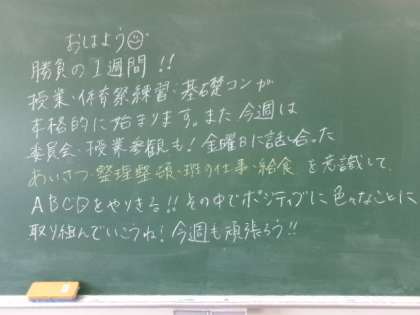 おはよう☺
勝負の1週間!!
授業・体育祭練習・基礎コンが
本格的に始まります。また今週は
委員会・授業参観も!金曜日に話し合った
あいさつ・整理整頓・班の仕事・給食を意識して、
ABCDをやりきる!!その中でポジティブに色々なことに
取り組んでいこうね!今週も頑張ろう!!